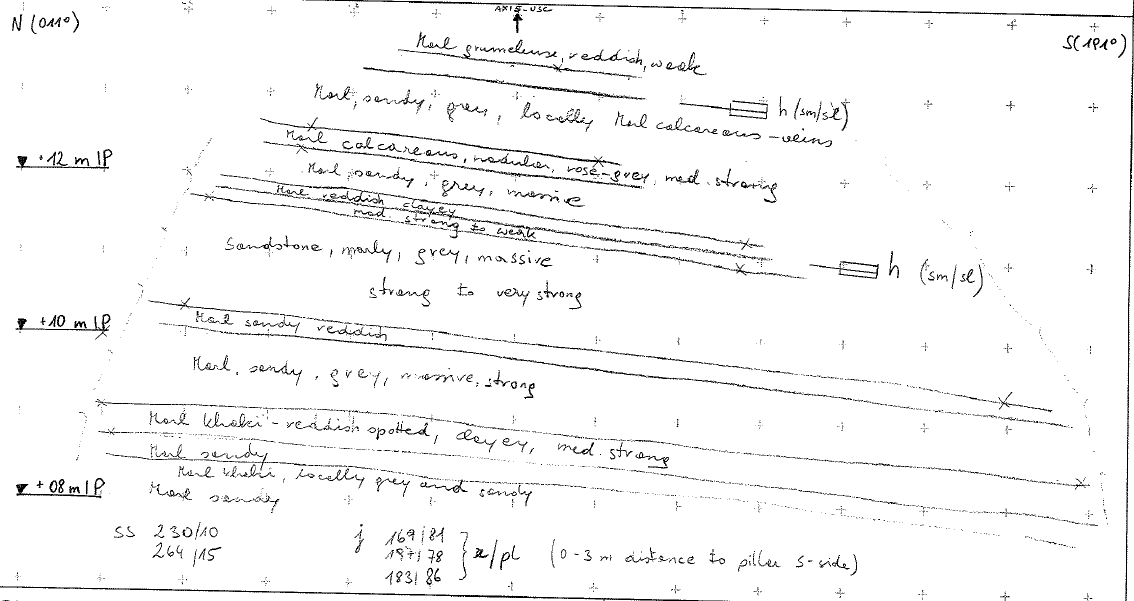 N (011°)
AXIS-USC
S (191°)
Marl grumeleuse, reddish, weak
h (sm/sl)
Marl, sandy, grey, locally Marl calcareous-veins
+12 m IP
Marl calcareous, nodular, rose-grey, med. strong
Marl, sandy, grey, massive
Marl reddish clayey
med. strong to weak
Sandstone, marly, grey, massive
h (sm/sl)
strong to very strong
+10 m IP
Marl sandy reddish
Marl, sandy, grey, massive, strong
Marl khaki-reddish spotted, clayey, med. strong
Marl sandy
Marl khaki, locally grey and sandy
+08 m IP
Marl sandy
ss 230/10
264/15
j 169/81
197/78
183/86
/pl (0-3 m distance to pillar S-side)